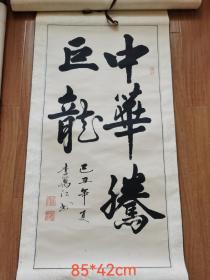 中華騰
巨龍
己丑年夏
李萬江书
85*42cm